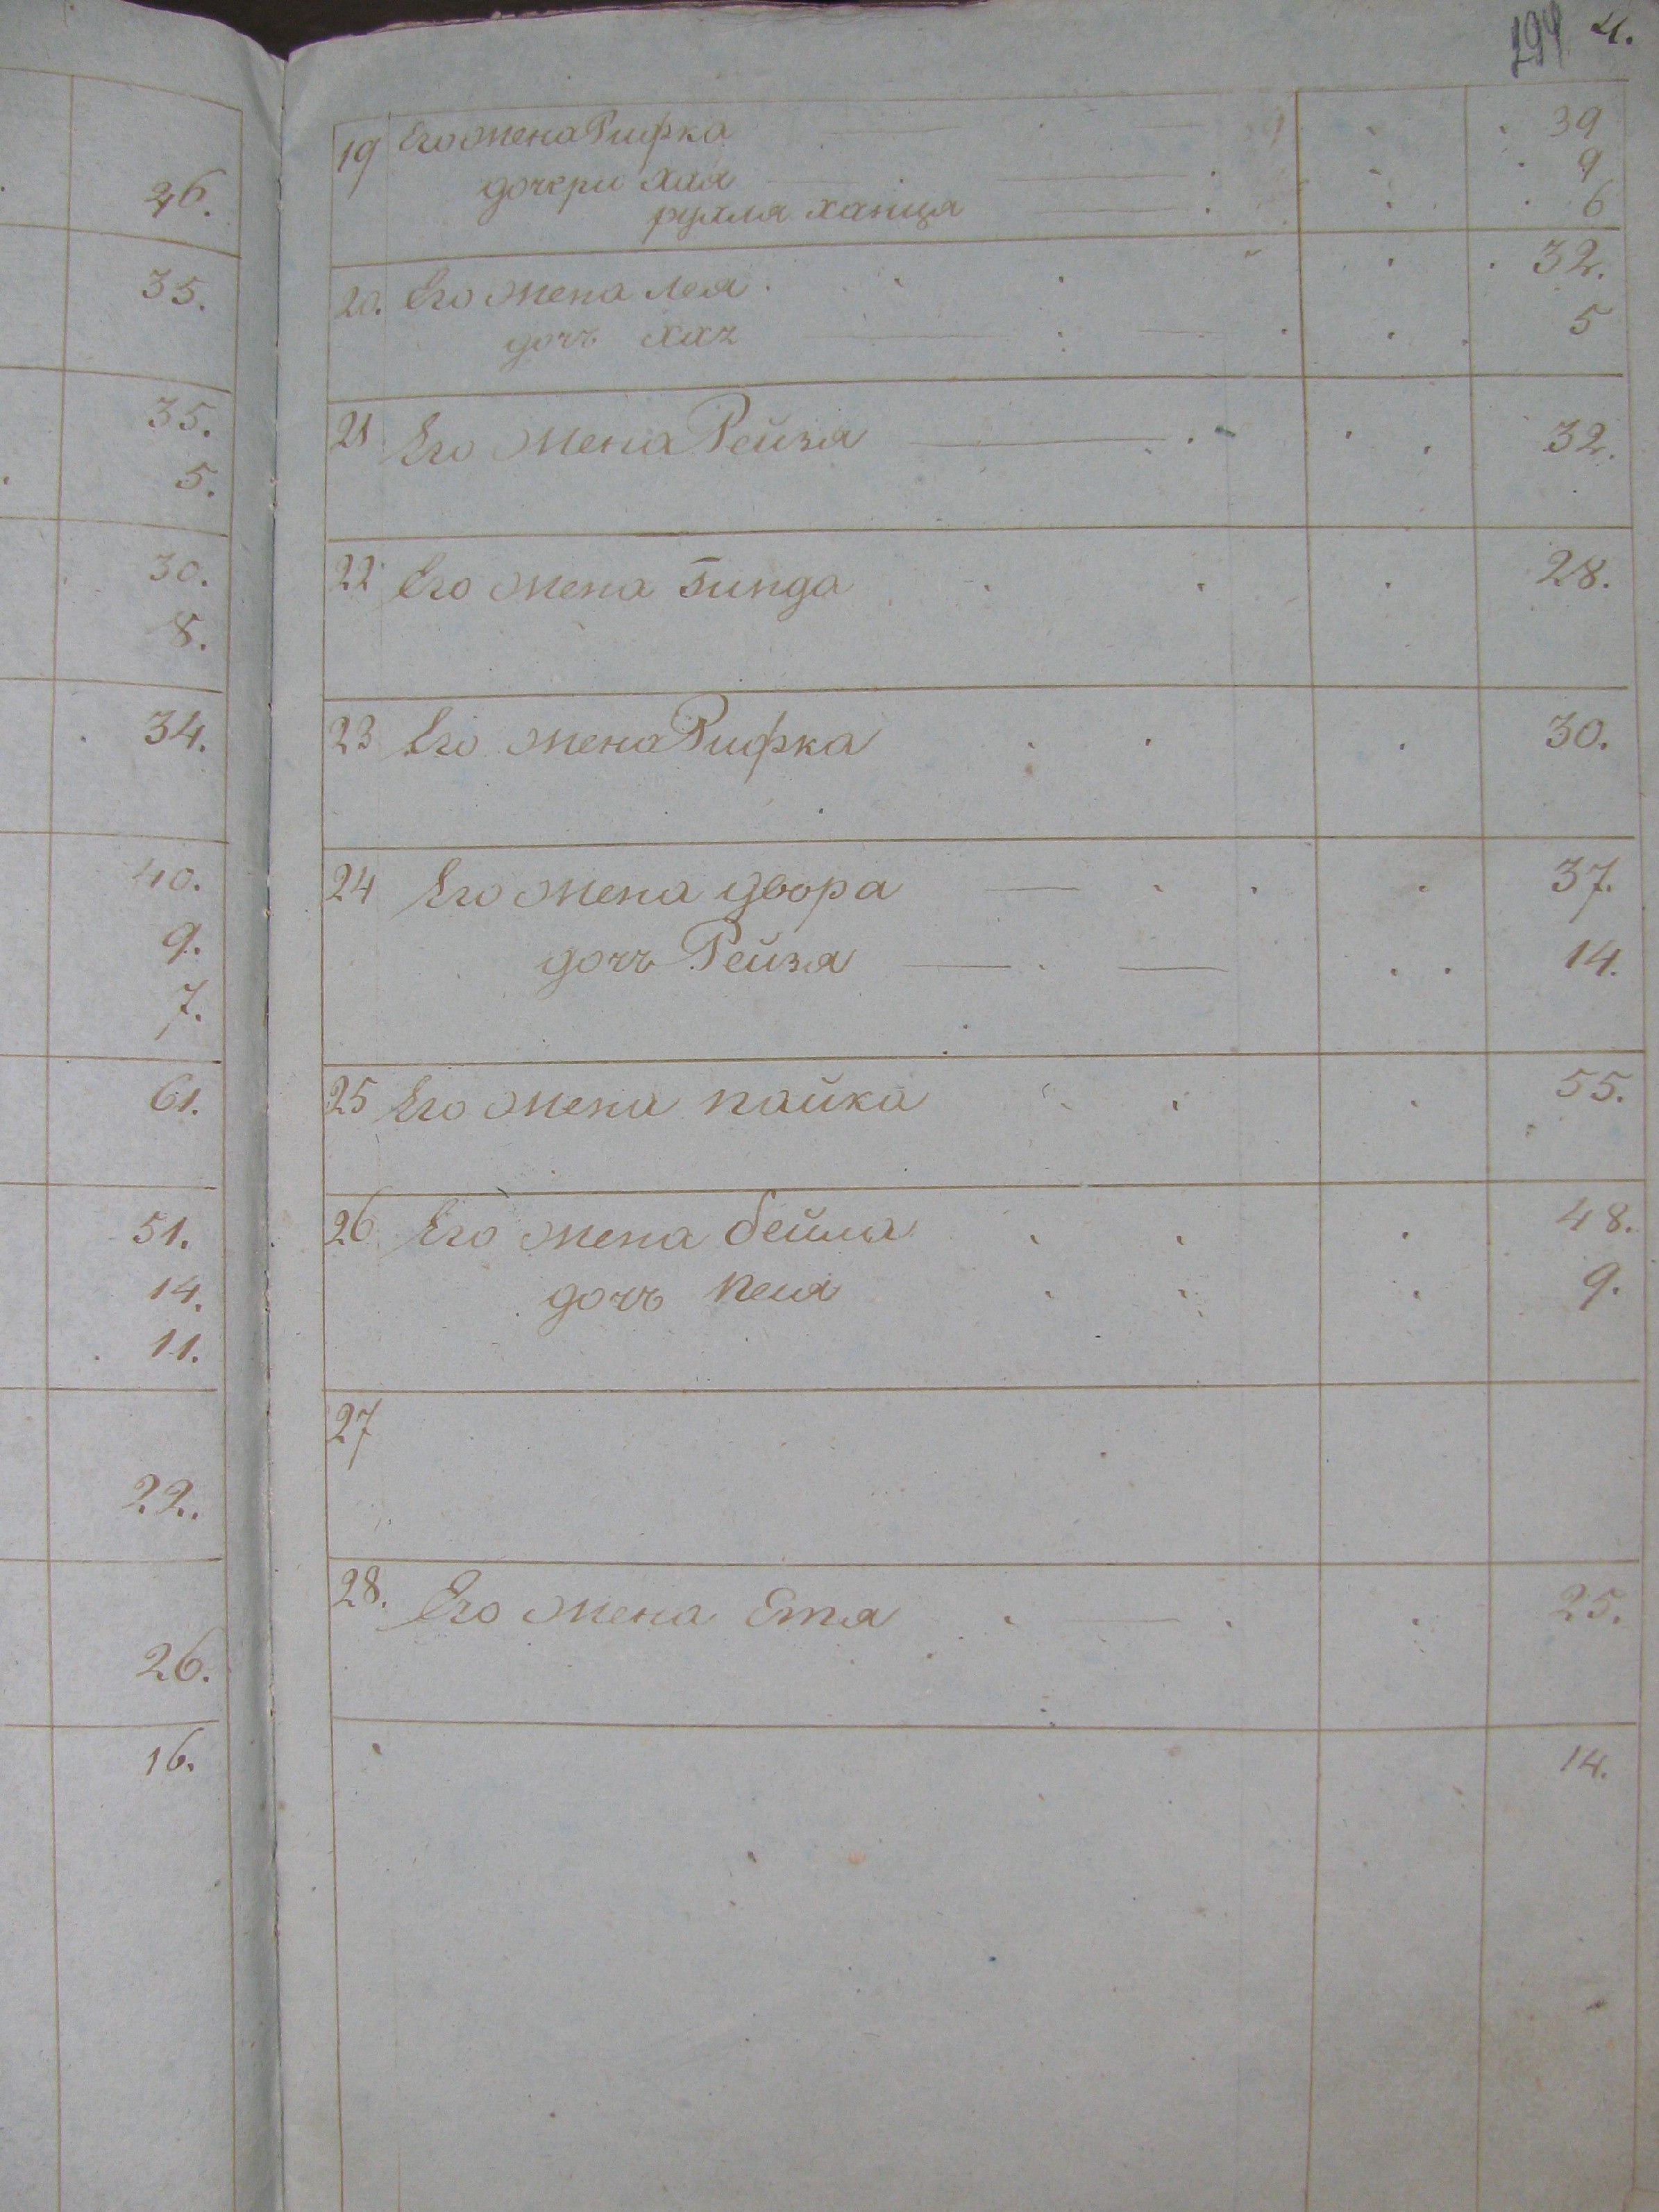 46.
35.
35.
5.
30.
8.
34.
40.
9.
7.
61.
51.
14.
11.
22.
26.
16.
4.
19 Его жена Рифка 39
дочери хая 9
рухля ханца 6
20. Его жена лея 32.
дочь хая 5
21. Его жена Рейза 32.
22 Его жена Гинда 28.
23 Его жена Рифка 30.
24 Его жена двора 37.
дочь Рейза 14.
25 Его жена пайка 55.
26 Его жена бейла 48.
дочь песя 9.
27
28. Его жена Етя 25.
14.